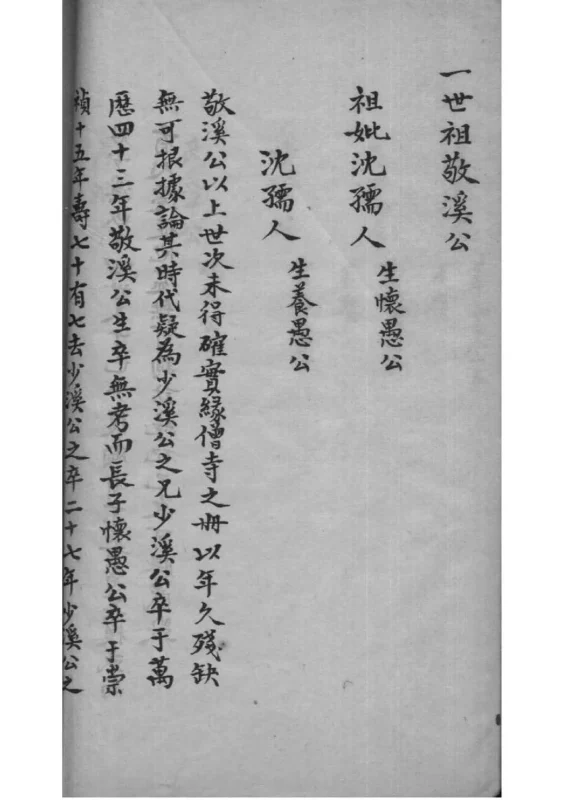 一世祖敬溪公
祖妣沈孺人
生懷愚公
沈孺人
生養愚公
敬溪公以上世次未得確實緣僧寺之册以年久殘缺
無可根據論其時代疑為少溪公之兄少溪公卒于萬
歷四十三年敬溪公生卒無考而長子懷愚公卒于崇
禎十五年壽七十有七去少溪公之卒二十七年少溪公之